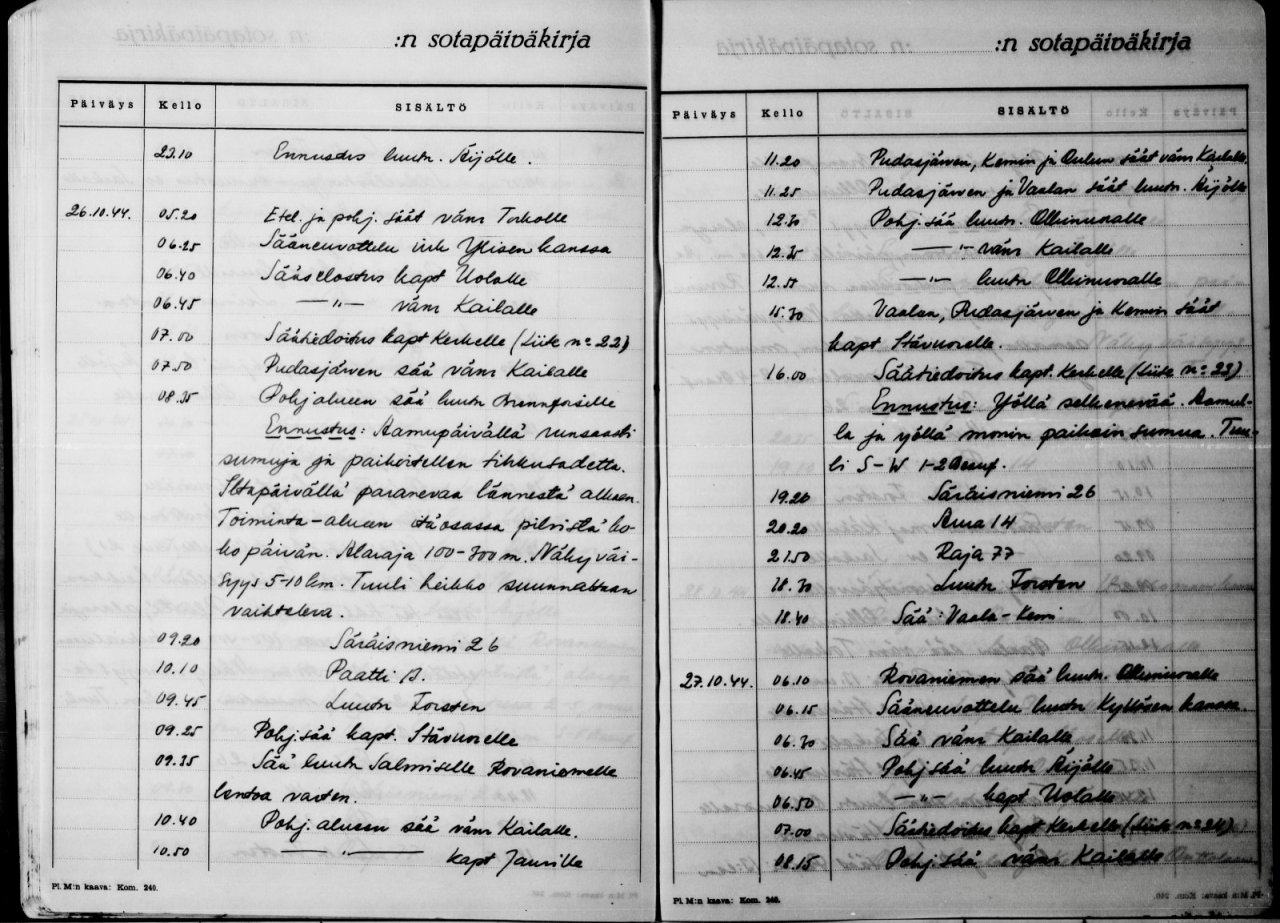 :n sotapäiväkirja
Päiväys Kello SISÄLTÖ
23.10 Ennustus luutn. Äijölle.
26.10.44. 05.20 Etel. ja pohj. säät vänr Torholle
06.25 Sääneuvottelu virk Ylisen kanssa
06.40 Sääselostus kapt Uolalle
06.45 —"— vänr Kailalle
07.00 Säätiedoitus kapt Kerkelle (Liite nº 22)
07.50 Pudasjärven sää vänr Kailalle
08.35 Pohj alueen sää luutn Brennforsille
Ennustus: Aamupäivällä runsaasti
sumuja ja paikoitellen tihkusadetta.
Iltapäivällä paranevaa lännestä alkaen.
Toiminta-alueen itäosassa pilvistä ko-
ko päivän. Alaraja 100-300 m. Näkyväi-
syys 5-10 km. Tuuli heikko suunnaltaan
vaihteleva.
09.20 Säräisniemi 26
10.10 Paatti B.
09.45 Luutn Torsten
09.25 Pohj. sää kapt. Stävuorelle
09.35 Sää luutn Salmiselle Rovaniemelle
lentoa varten.
10.40 Pohj. alueen sää vänr Kailalle.
10.50 —"— kapt Jaurille
Pl. M:n kaava: Kom. 240.
:n sotapäiväkirja
Päiväys Kello SISÄLTÖ
11.20 Pudasjärven, Kemin ja Oulun säät vänr Kailalle
11.25 Pudasjärven ja Vaalan säät luutn. Äijölle
12.30 Pohj. sää luutn. Ollinuoralle
12.35 —"— vänr Kailalle
12.50 —"— luutn Ollinuoralle
15.30 Vaalan, Pudasjärven ja Kemin säät
kapt Stävuorelle.
16.00 Säätiedoitus kapt. Kerkelle (Liite nº 23)
Ennustus: Yöllä selkenevää. Aamul-
la ja yöllä monin paikoin sumua. Tuu-
li S-W 1-2 Beauf.
19.20 Säräisniemi 26
20.20 Aura 14
21.50 Raja 77
18.30 Luutn Torsten
18.40 Sää: Vaala - Kemi
27.10.44. 06.10 Rovaniemen sää luutn. Ollinuoralle
06.15 Sääneuvottelu luutn Kyllösen kanssa.
06.30 Sää vänr Kailalle
06.45 Pohj sää luutn Äijölle
06.50 —"— kapt Uolalle
07.00 Säätiedoitus kapt Kerkelle (Liite nº 24)
08.15 Pohj. sää vänr Kailalle
Pl. M:n kaava: Kom. 240.